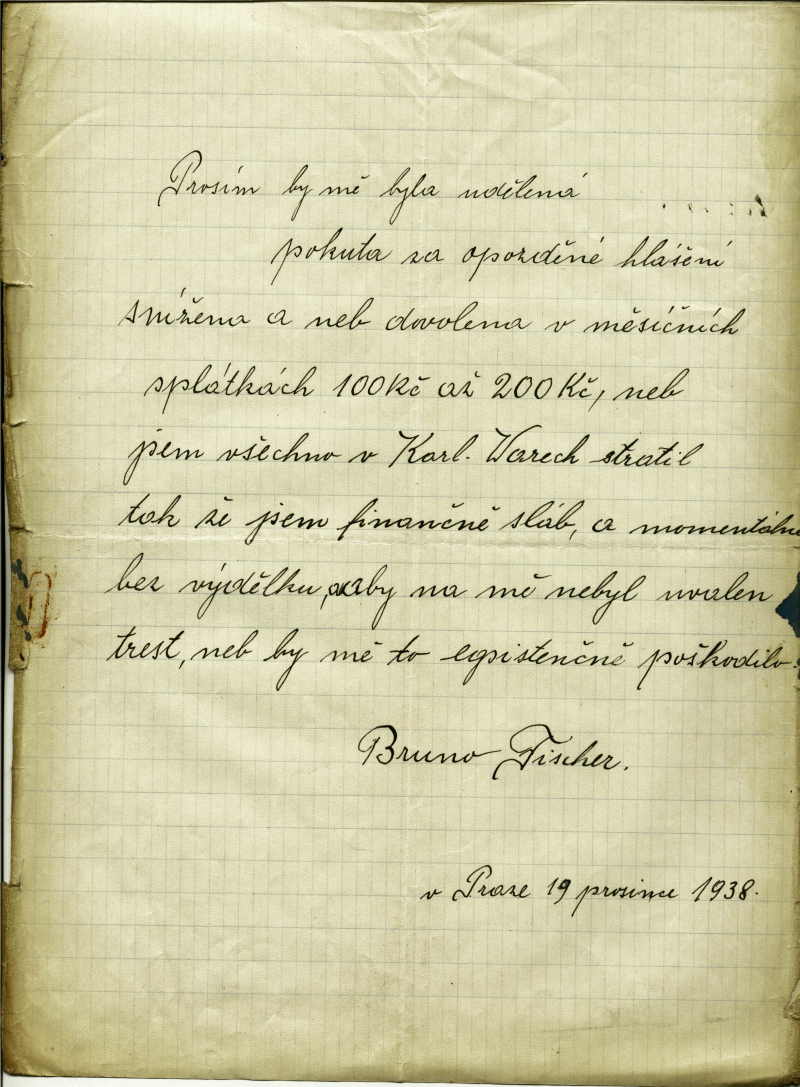 Prosím by mě byla udělená
pokuta za opozděné hlášení
snížena a neb dovolena v měsíčních
splátkách 100 Kč až 200 Kč, neb
jsem všechno v Karl. Varech stratil
tak že jsem finančně sláb, a momentálně
bez výdělku, aby na mě nebyl uvalen
trest, neb by mě to egsistenčně poškodilo.
Bruno Fischer.
v Praze 19 prosince 1938.